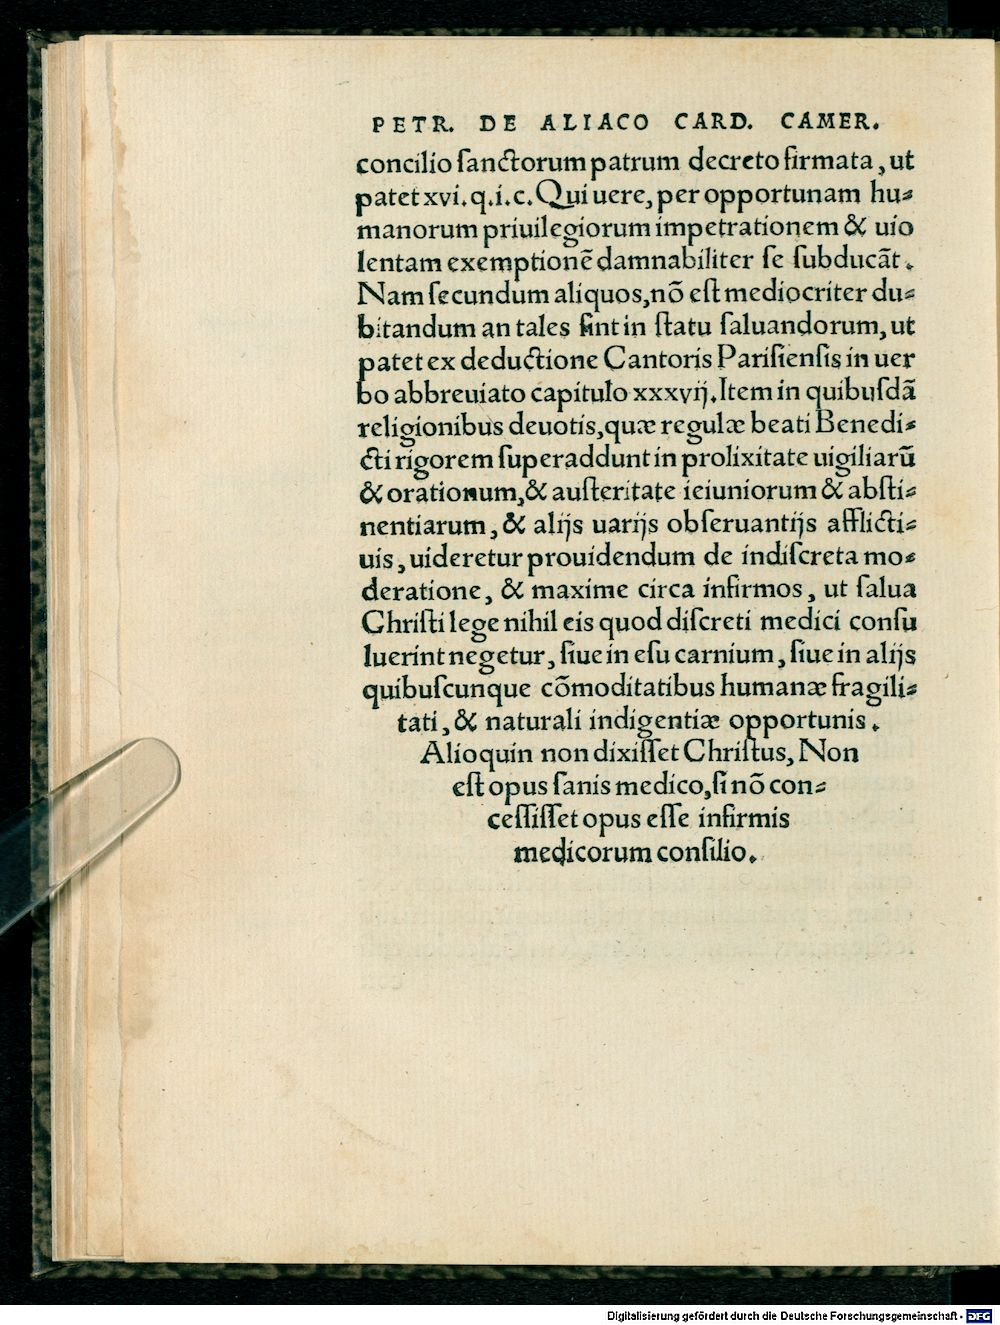 PETR. DE ALIACO CARD. CAMER.
concilio ſanctorum patrum decreto firmata, ut
patet xvi. q. i. c. Qui uere, per opportunam hu-
manorum priuilegiorum impetrationem & uio
lentam exemptionẽ damnabiliter ſe ſubducãt.
Nam ſecundum aliquos, nõ eſt mediocriter du-
bitandum an tales ſint in ſtatu ſaluandorum, ut
patet ex deductione Cantoris Pariſienſis in uer
bo abbreuiato capitulo xxxvij. Item in quibuſdã
religionibus deuotis, quæ regulæ beati Benedi-
cti rigorem ſuperaddunt in prolixitate uigiliarũ
& orationum, & auſteritate ieiuniorum & abſti-
nentiarum, & alijs uarijs obſeruantijs afflicti-
uis, uideretur prouidendum de indiſcreta mo-
deratione, & maxime circa infirmos, ut ſalua
Chriſti lege nihil eis quod diſcreti medici conſu
luerint negetur, ſiue in eſu carnium, ſiue in alijs
quibuſcunque cõmoditatibus humanæ fragili-
tati, & naturali indigentiæ opportunis.
Alioquin non dixiſſet Chriſtus, Non
eſt opus ſanis medico, ſi nõ con-
ceſſiſſet opus eſſe infirmis
medicorum conſilio.
Digitalisierung gefördert durch die Deutsche Forschungsgemeinschaft - DFG